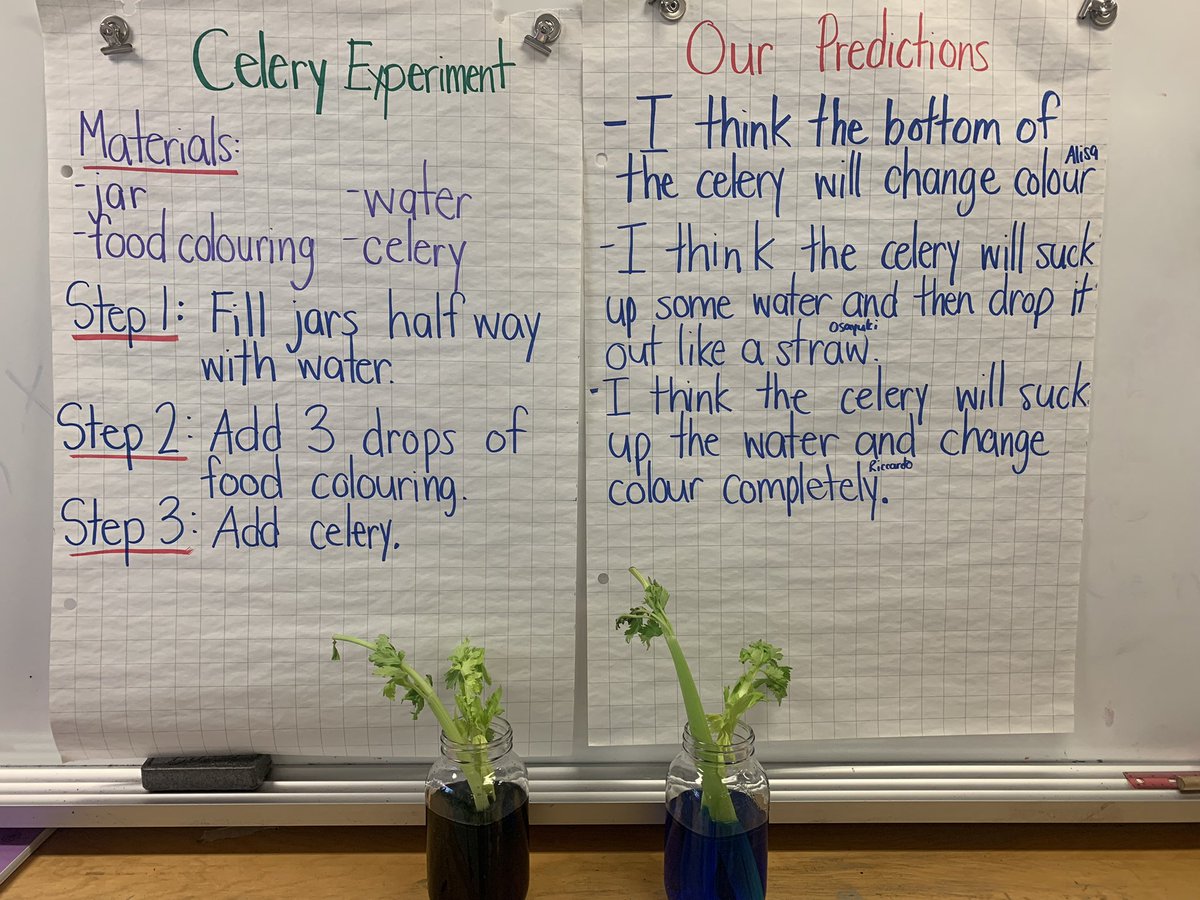 Celery Experiment
Materials:
-jar
-water
-food colouring
-celery
Step 1: Fill jars half way
with water.
Step 2: Add 3 drops of
food colouring.
Step 3: Add celery.
Our Predictions
-I think the bottom of
the celery will change colour Alisa
-I think the celery will suck
up some water and then drop it
out like a straw. Osayuki
-I think the celery will suck
up the water and change
colour completely. Riccardo